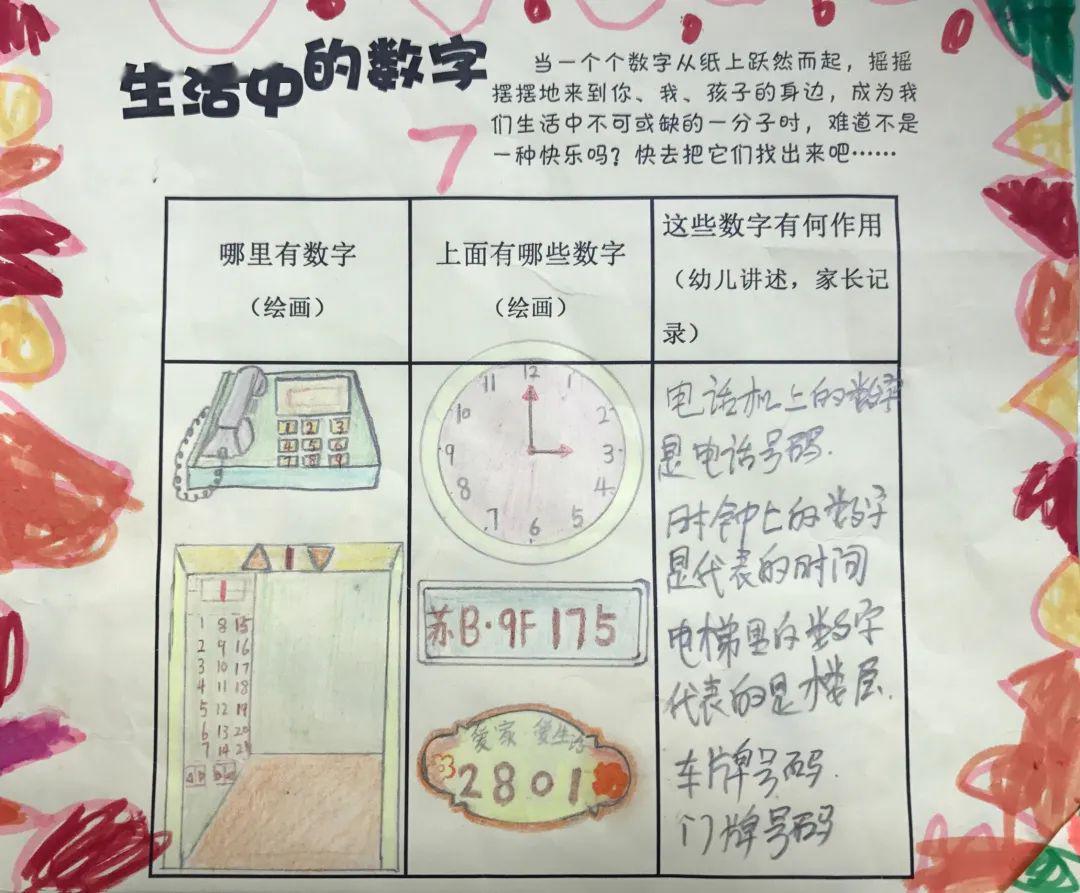 生活中的数字
当一个个数字从纸上跃然而起，摇摇
摆摆地来到你、我、孩子的身边，成为我
们生活中不可或缺的一分子时，难道不是
一种快乐吗？快去把它们找出来吧……
7
哪里有数字
（绘画）
上面有哪些数字
（绘画）
这些数字有何作用
（幼儿讲述，家长记
录）
1 2 3
4 5 6
7 8 9
1
1
1 8 15
2 9 16
3 10 17
4 11 18
5 12 19
6 13 20
7 14 21
12
1
2
3
4
5
6
7
8
9
10
11
苏B·9F175
爱家 爱生活
2801
电话机上的数字
是电话号码.
时钟上的数字
是代表的时间
电梯里的数字
代表的是楼层.
车牌号码.
门牌号码